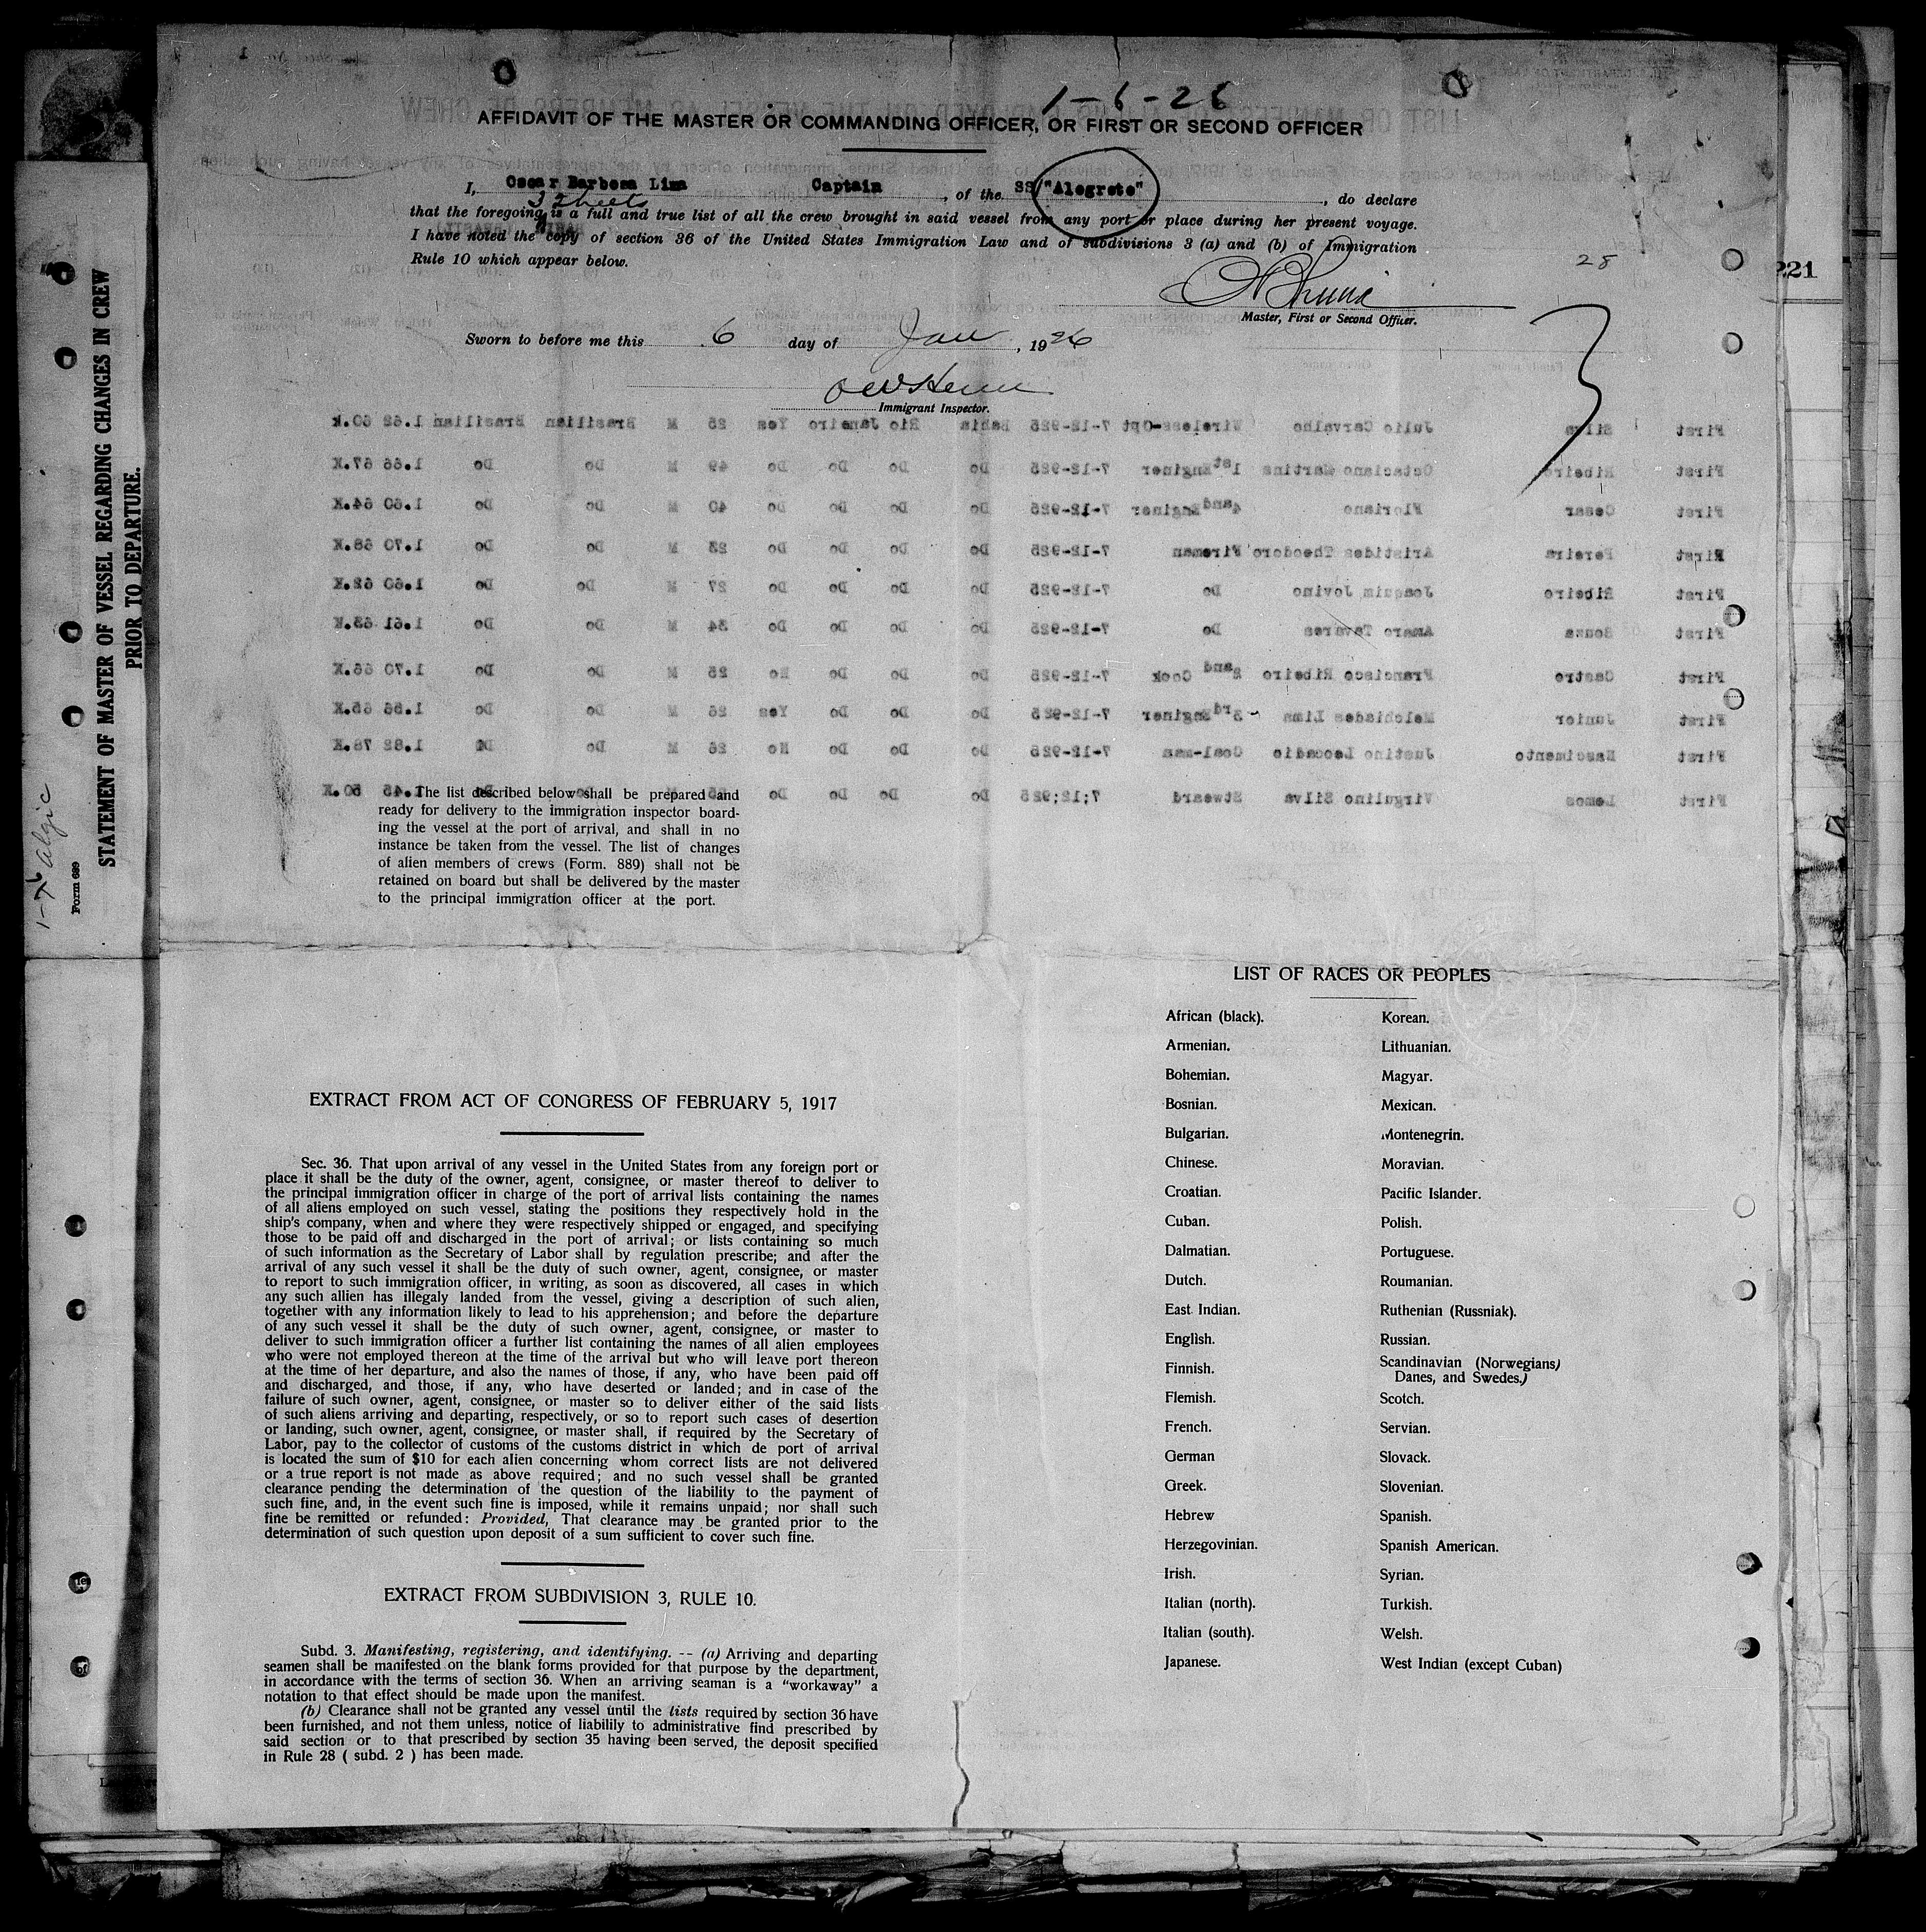 1-6-26
AFFIDAVIT OF THE MASTER OR COMMANDING OFFICER, OR FIRST OR SECOND OFFICER
I, Oscar Barbosa Lima Captain, of the SS "Alegrete", do declare
3 sheets
that the foregoing is a full and true list of all the crew brought in said vessel from any port or place during her present voyage.
I have noted the copy of section 36 of the United States Immigration Law and of subdivisions 3 (a) and (b) of Immigration
Rule 10 which appear below.
28
221
Master, First or Second Officer.
Sworn to before me this 6 day of Jan, 1926
Immigrant Inspector.
First Silva Julio Carvalho Wireless-Opt 7-12-925 Bahia Rio Janeiro Yes 25 M Brasilian Brasilian 1.62 60.k
First Ribeiro Octaciano Martins 1st Enginer 7-12-925 Do Do Do Do 49 M Do Do 1.66 67.K
First Cesar Floriano 4and Enginer 7-12-925 Do Do Do Do 40 M Do Do 1.60 64.K
First Pereira Aristides Theodoro Fireman 7-12-925 Do Do Do Do 23 M Do Do 1.70 68.K
First Ribeiro Joaquim Jovino Do 7-12-925 Do Do Do Do 27 M Do Do 1.60 62.K
First Souza Amaro Tavares Do 7-12-925 Do Do Do Do 34 M Do Do 1.61 63.K
First Castro Francisco Ribeiro 2and Cook 7-12-925 Do Do Do No 25 M Do Do 1.70 66.K
First Junior Melchiades Lima 3rd Enginer 7-12-925 Do Do Do Yes 26 M Do Do 1.56 65.K
First Nascimento Justino Leocadio Coal-man 7-12-925 Do Do Do No 26 M Do Do 1.82 78.K
First Lemos Virgulino Silva Stweard 7;12;925 Do Do Do Do 1.45 50.K
The list described below shall be prepared and
ready for delivery to the immigration inspector board-
ing the vessel at the port of arrival, and shall in no
instance be taken from the vessel. The list of changes
of alien members of crews (Form. 889) shall not be
retained on board but shall be delivered by the master
to the principal immigration officer at the port.
Form 689
STATEMENT OF MASTER OF VESSEL REGARDING CHANGES IN CREW
PRIOR TO DEPARTURE.
EXTRACT FROM ACT OF CONGRESS OF FEBRUARY 5, 1917
Sec. 36. That upon arrival of any vessel in the United States from any foreign port or
place it shall be the duty of the owner, agent, consignee, or master thereof to deliver to
the principal immigration officer in charge of the port of arrival lists containing the names
of all aliens employed on such vessel, stating the positions they respectively hold in the
ship's company, when and where they were respectively shipped or engaged, and specifying
those to be paid off and discharged in the port of arrival; or lists containing so much
of such information as the Secretary of Labor shall by regulation prescribe; and after the
arrival of any such vessel it shall be the duty of such owner, agent, consignee, or master
to report to such immigration officer, in writing, as soon as discovered, all cases in which
any such allien has illegaly landed from the vessel, giving a description of such alien,
together with any information likely to lead to his apprehension; and before the departure
of any such vessel it shall be the duty of such owner, agent, consignee, or master to
deliver to such immigration officer a further list containing the names of all alien employees
who were not employed thereon at the time of the arrival but who will leave port thereon
at the time of her departure, and also the names of those, if any, who have been paid off
and discharged, and those, if any, who have deserted or landed; and in case of the
failure of such owner, agent, consignee, or master so to deliver either of the said lists
of such aliens arriving and departing, respectively, or so to report such cases of desertion
or landing, such owner, agent, consignee, or master shall, if required by the Secretary of
Labor, pay to the collector of customs of the customs district in which de port of arrival
is located the sum of $10 for each alien concerning whom correct lists are not delivered
or a true report is not made as above required; and no such vessel shall be granted
clearance pending the determination of the question of the liability to the payment of
such fine, and, in the event such fine is imposed, while it remains unpaid; nor shall such
fine be remitted or refunded: Provided, That clearance may be granted prior to the
determination of such question upon deposit of a sum sufficient to cover such fine.
EXTRACT FROM SUBDIVISION 3, RULE 10.
Subd. 3. Manifesting, registering, and identifying. -- (a) Arriving and departing
seamen shall be manifested on the blank forms provided for that purpose by the department,
in accordance with the terms of section 36. When an arriving seaman is a "workaway" a
notation to that effect should be made upon the manifest.
(b) Clearance shall not be granted any vessel until the lists required by section 36 have
been furnished, and not them unless, notice of liabilily to administrative find prescribed by
said section or to that prescribed by section 35 having been served, the deposit specified
in Rule 28 ( subd. 2 ) has been made.
LIST OF RACES OR PEOPLES
African (black).
Armenian.
Bohemian.
Bosnian.
Bulgarian.
Chinese.
Croatian.
Cuban.
Dalmatian.
Dutch.
East Indian.
English.
Finnish.
Flemish.
French.
German
Greek.
Hebrew
Herzegovinian.
Irish.
Italian (north).
Italian (south).
Japanese.
Korean.
Lithuanian.
Magyar.
Mexican.
Montenegrin.
Moravian.
Pacific Islander.
Polish.
Portuguese.
Roumanian.
Ruthenian (Russniak).
Russian.
Scandinavian (Norwegians)
Danes, and Swedes.)
Scotch.
Servian.
Slovack.
Slovenian.
Spanish.
Spanish American.
Syrian.
Turkish.
Welsh.
West Indian (except Cuban)